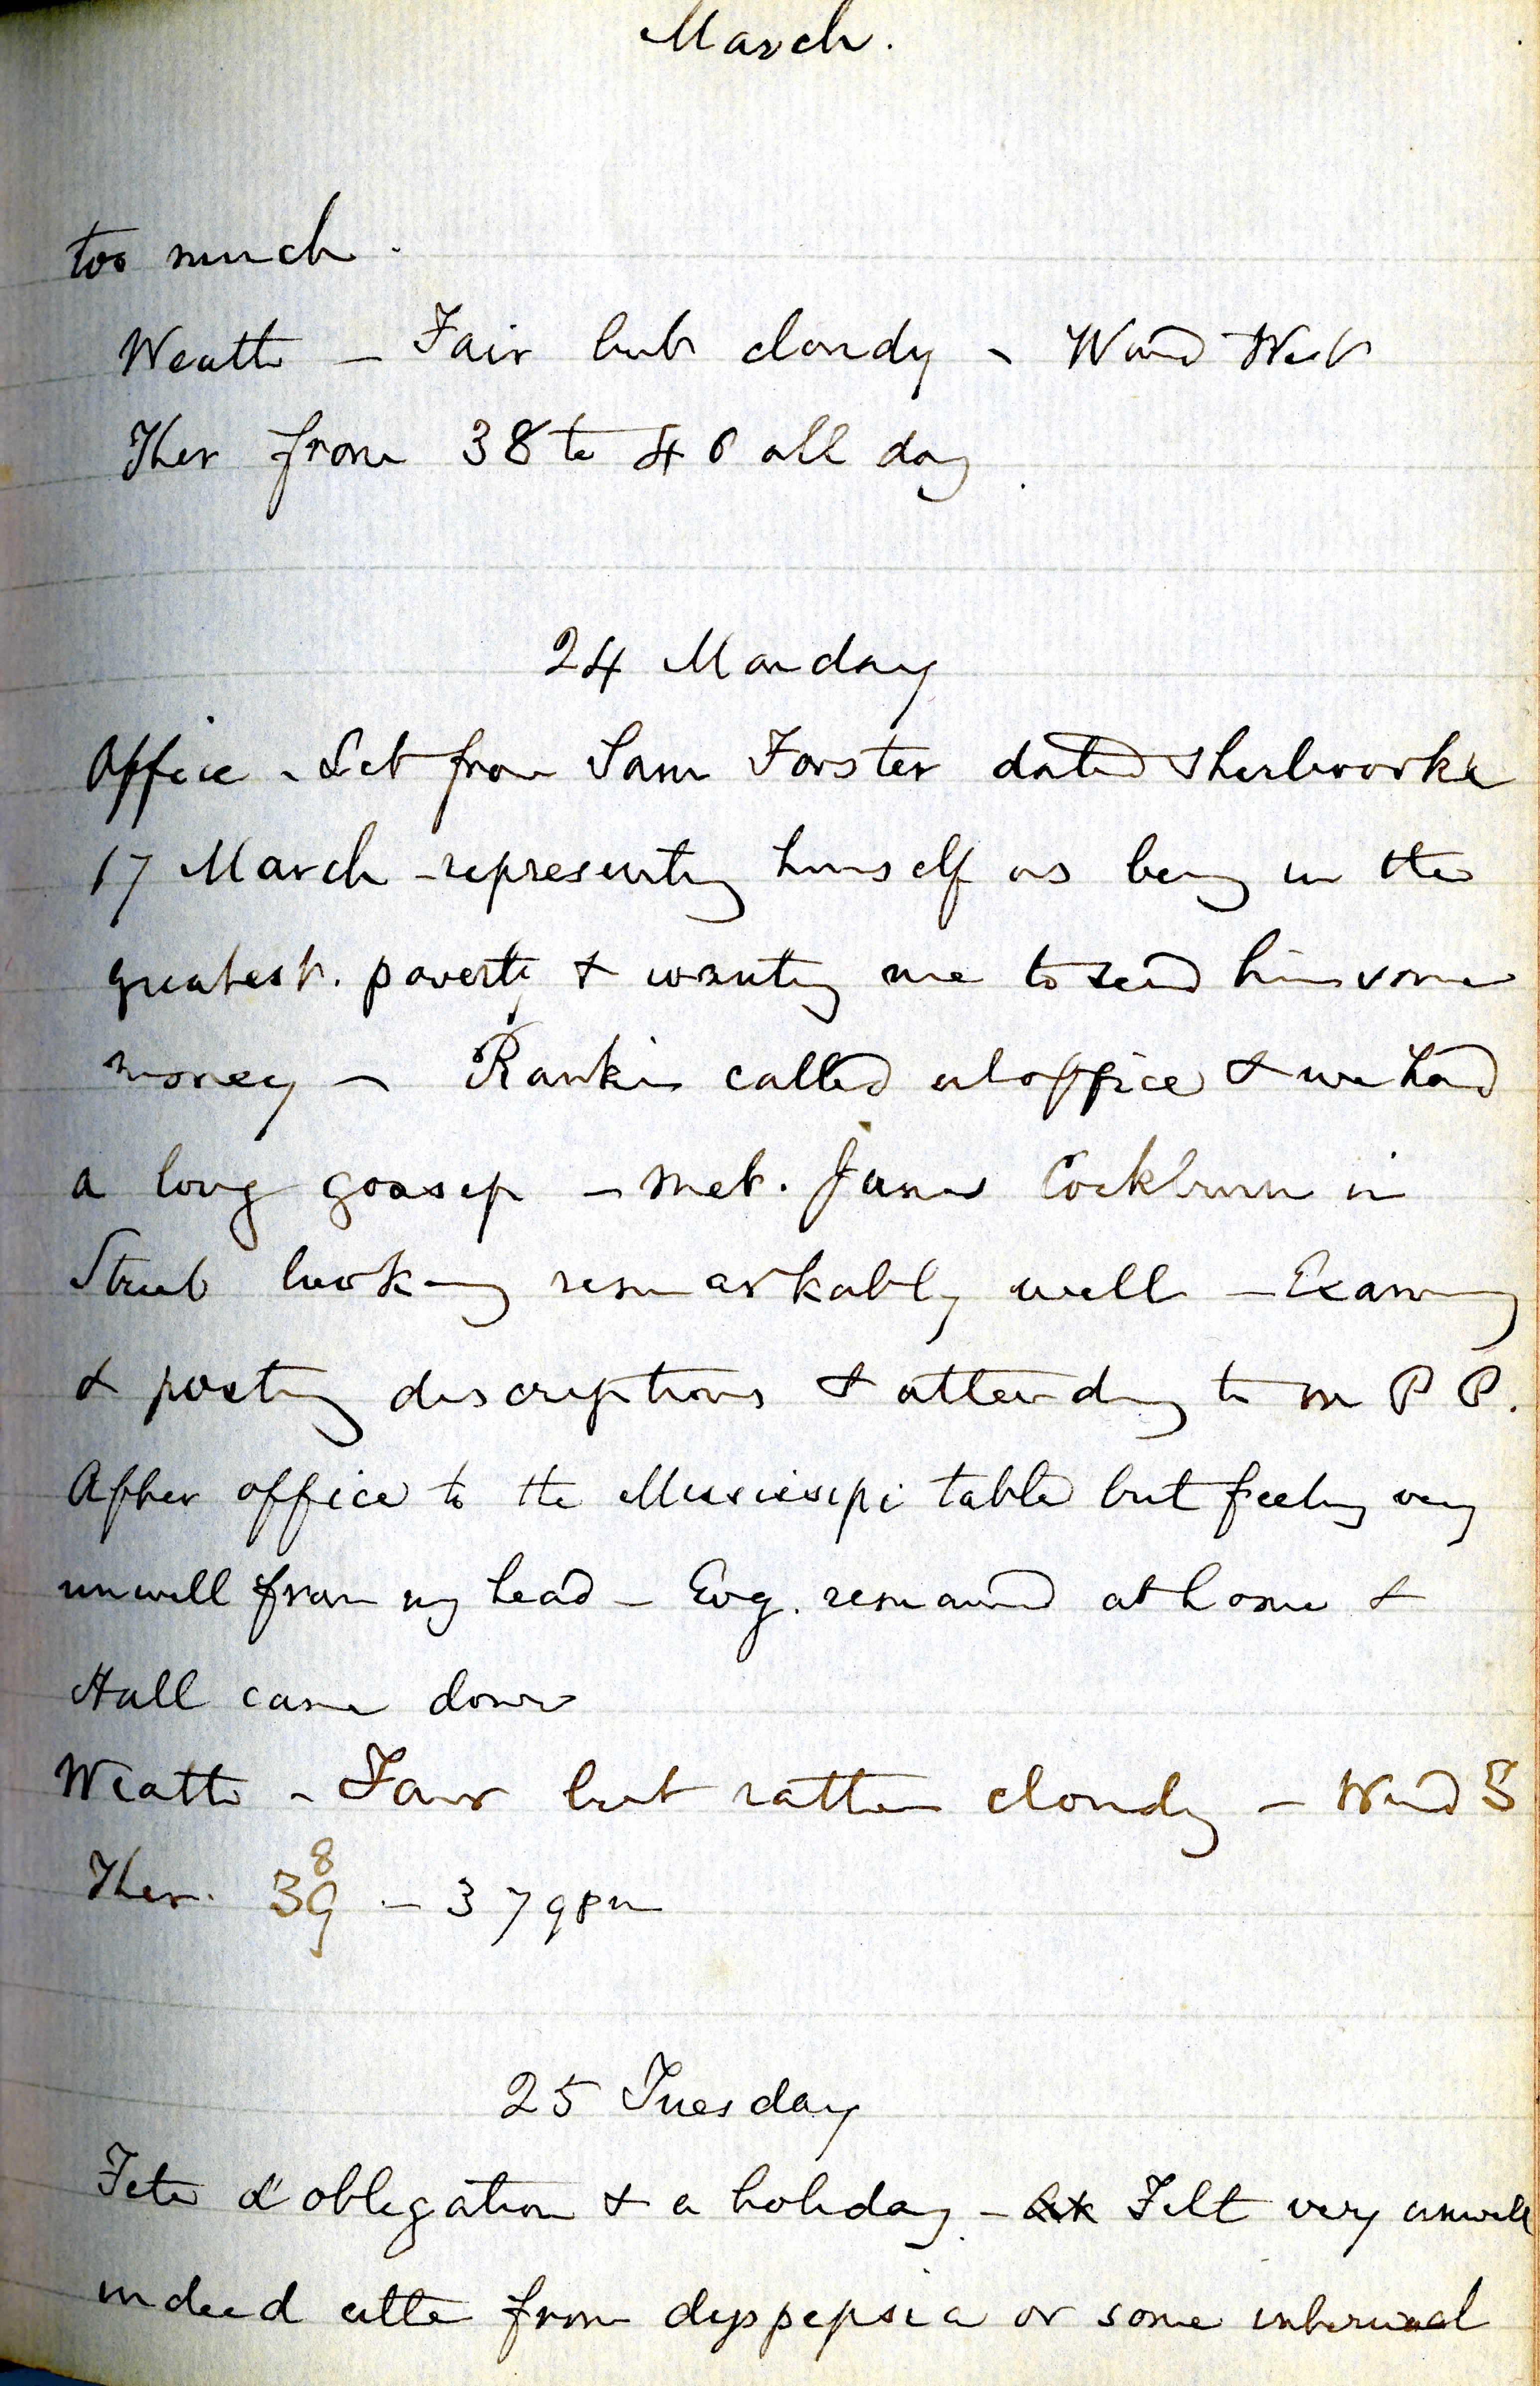 March.
too much.
Weather – Fair but cloudy – Wind West
Ther from 38 to 40 all day
24 Monday
Office – Let from Sam Forster dated Sherbrooke
17 March – representing himself as being in the
greatest. poverty & wanting me to send him some
money – Rankin called at office & we had
a long gossip – met. James Cockburn in
Street looking remarkably well – Examing
& posting descriptions & attending to my P P.
After office to the Mississipi table but feeling very
unwell from my head – Evg. remained at home &
Hall came down
Weather – Fair but rather cloudy – Wind S
Ther. 39 8 – 37 9 pm
25 Tuesday
Fete d'obligation & a holiday – Felt very unwell
indeed either from dyspepsia or some internal